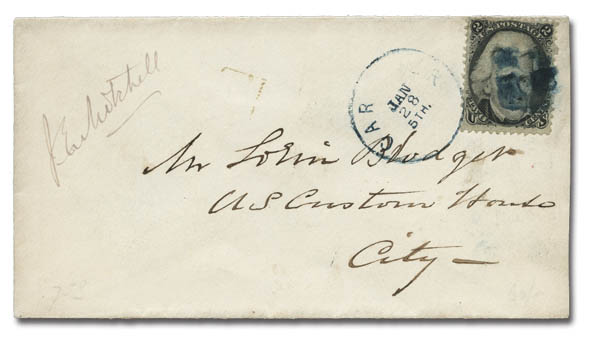 2 POSTAGE 2
J E Mitchell
CAR
JAN
28
5TH.
Mr Lorin Blodget
US Custom House
City —